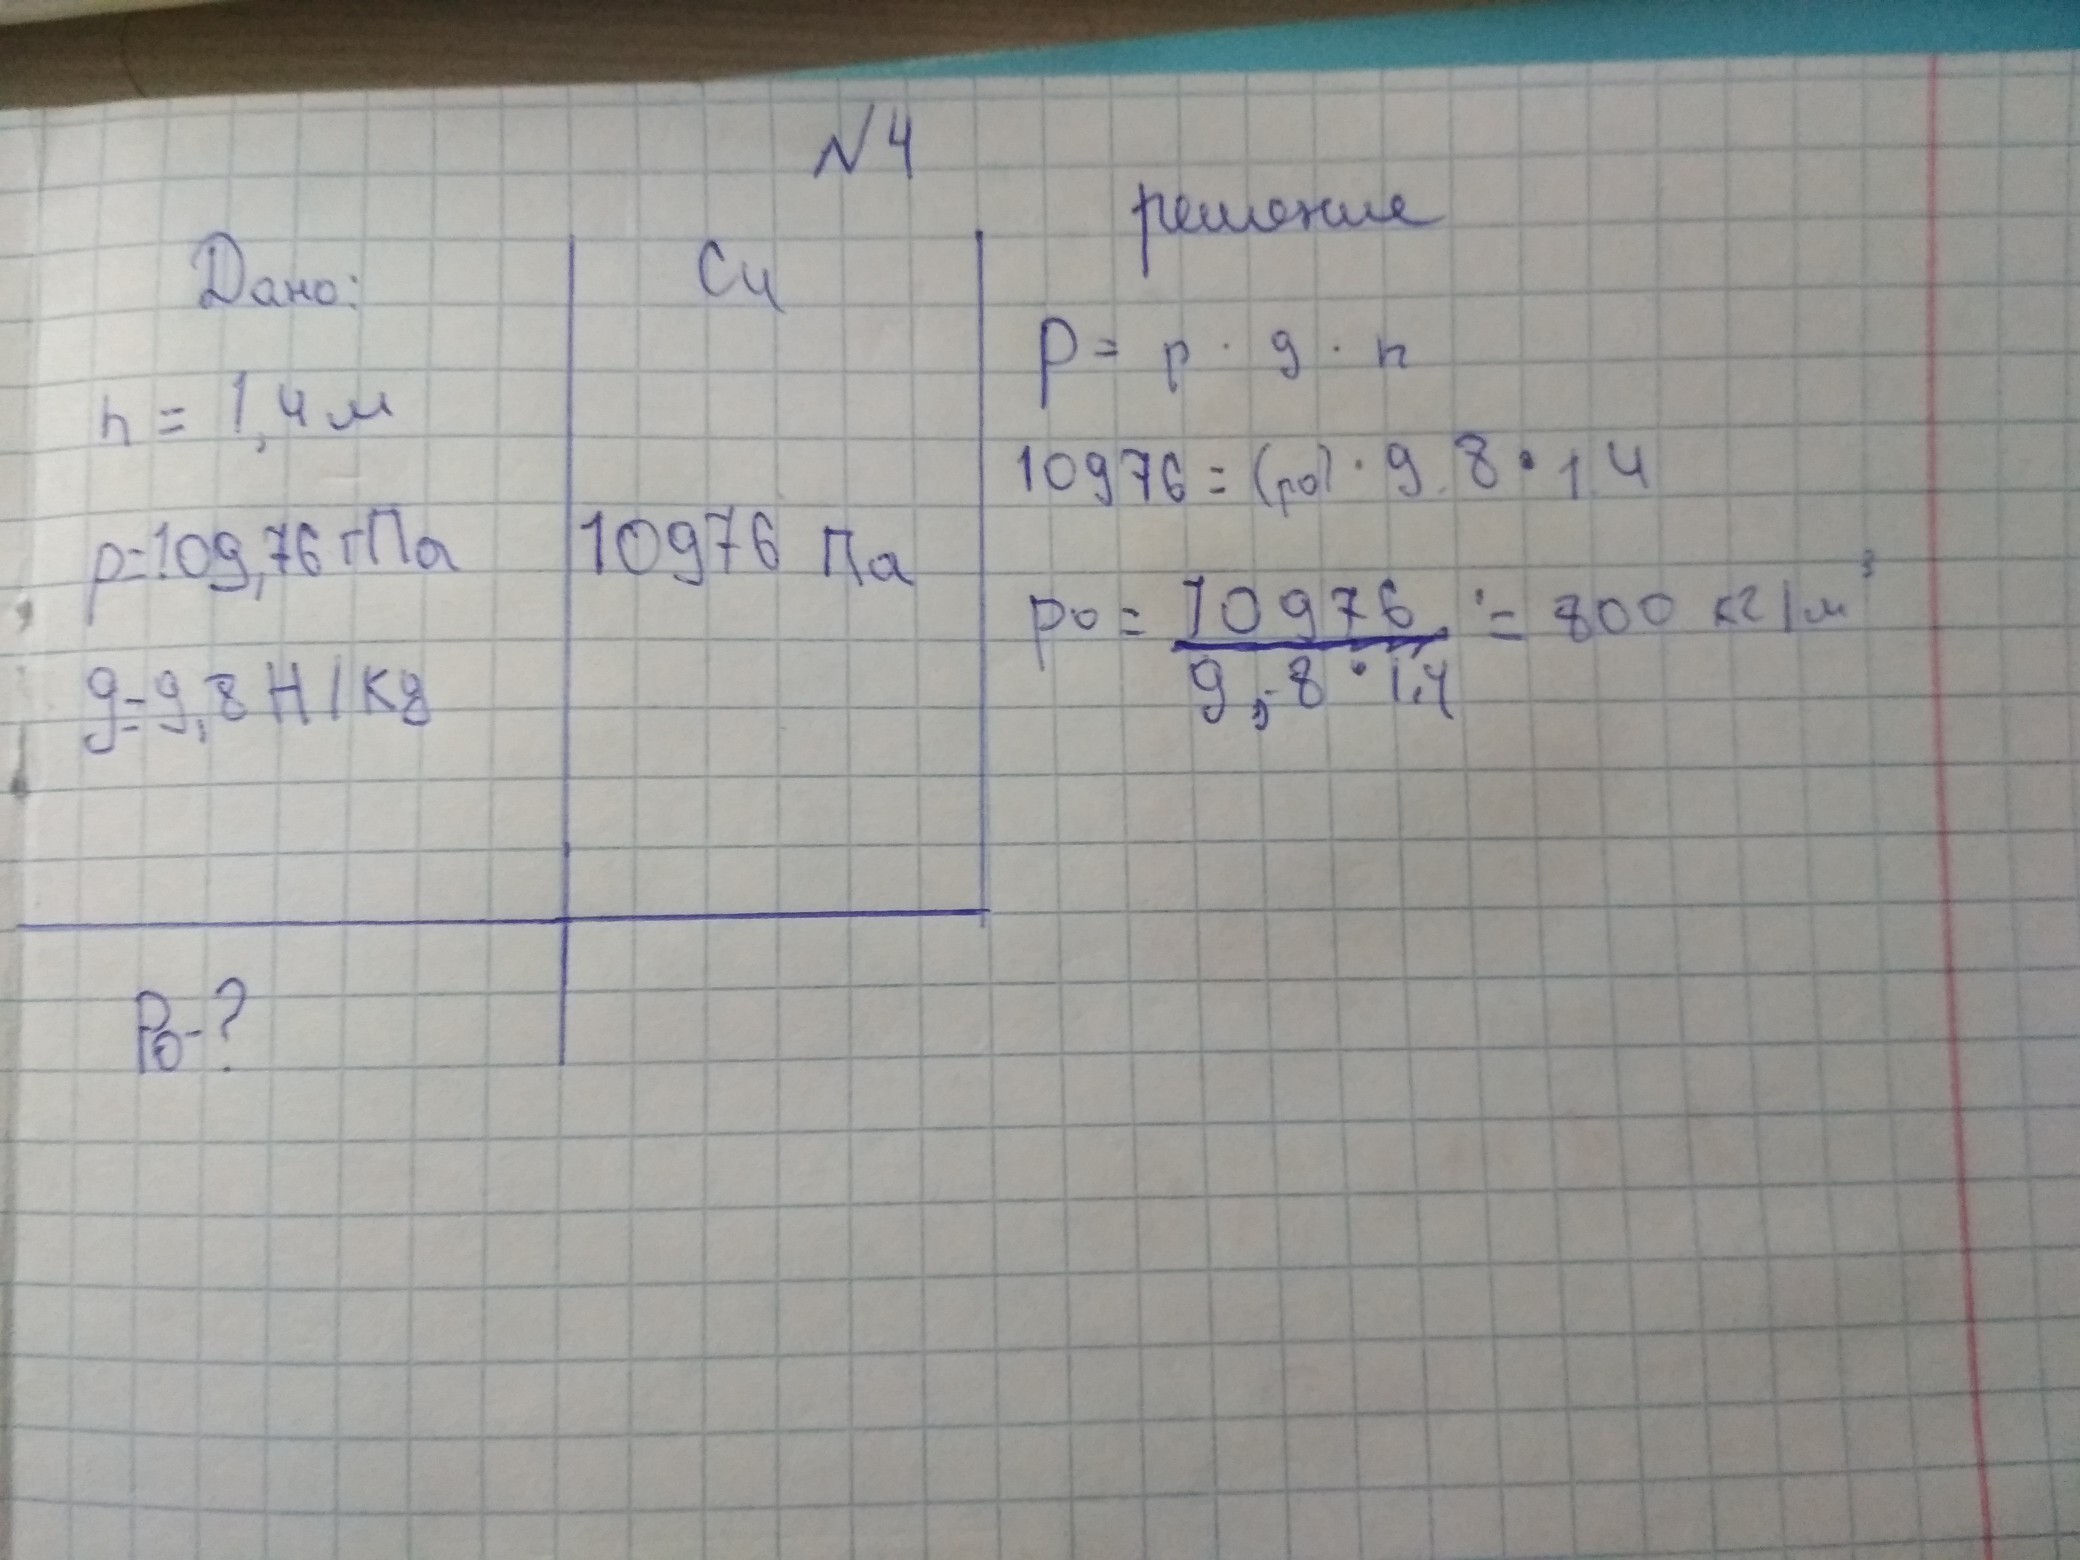 N4
Дано:
h = 1,4 м
p=109,76 гПа
g=9,8 Н/кg
Po-?
Си
10976 Па
решение
P = p · g · h
10976 = (po) · 9.8 · 1,4
po = 10976 / 9,8 · 1,4 = 800 кг/м³